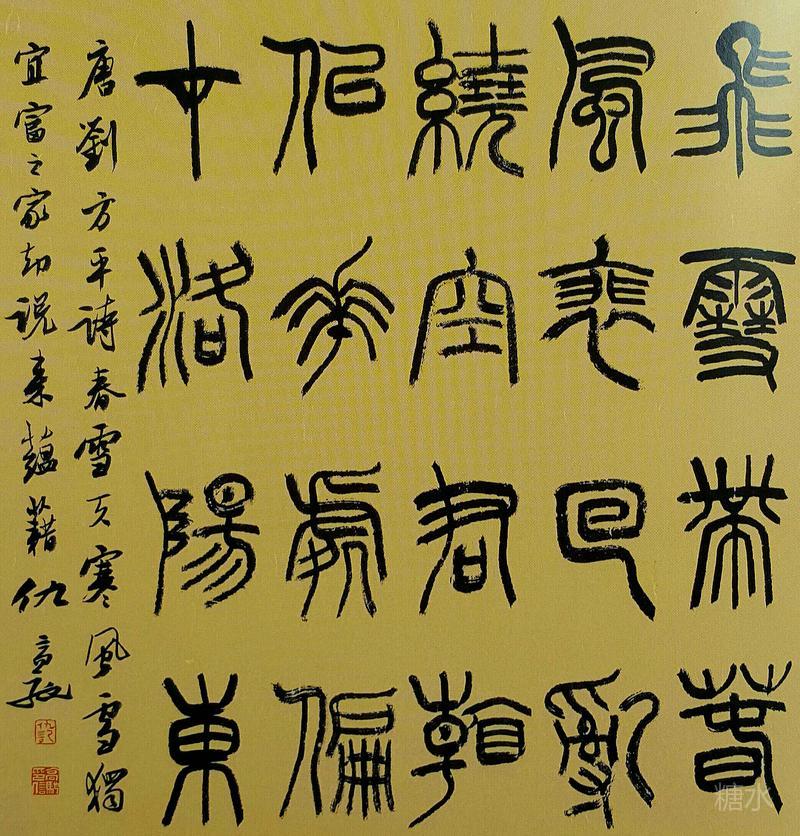 飛雪帶春
風裴回亂
繞空君看
佀華處偏
才洛陽東
唐劉方平詩春雪天寒風雪獨
宜富之家却説來蘊藉仇高馳
糖水